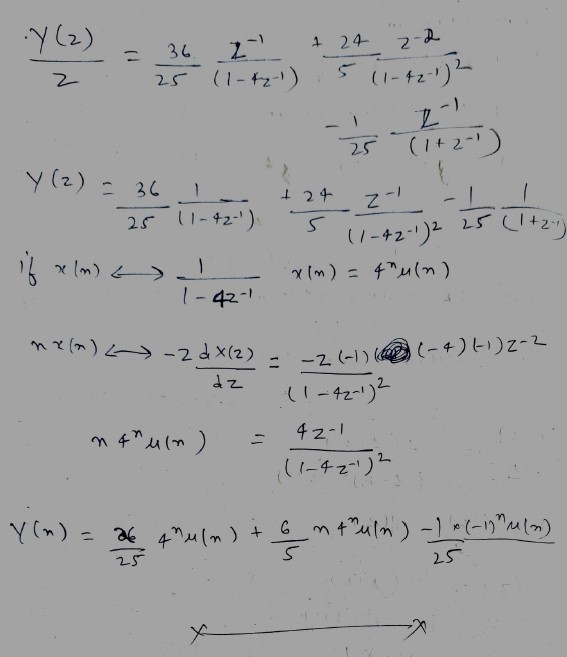 Y(z)/z = 36/25 z^-1/(1-4z^-1) + 24/5 z^-2/(1-4z^-1)^2
- 1/25 z^-1/(1+z^-1)
Y(z) = 36/25 1/(1-4z^-1) + 24/5 z^-1/(1-4z^-1)^2 - 1/25 1/(1+z^-1)
if x(n) ⟷ 1/(1-4z^-1) x(n) = 4^n u(n)
n x(n) ⟷ -z dX(z)/dz = -z(-1)(-4)(-1)z^-2/(1-4z^-1)^2
n 4^n u(n) = 4z^-1/(1-4z^-1)^2
Y(n) = 36/25 4^n u(n) + 6/5 n 4^n u(n) - 1 × (-1)^n u(n)/25
x———x